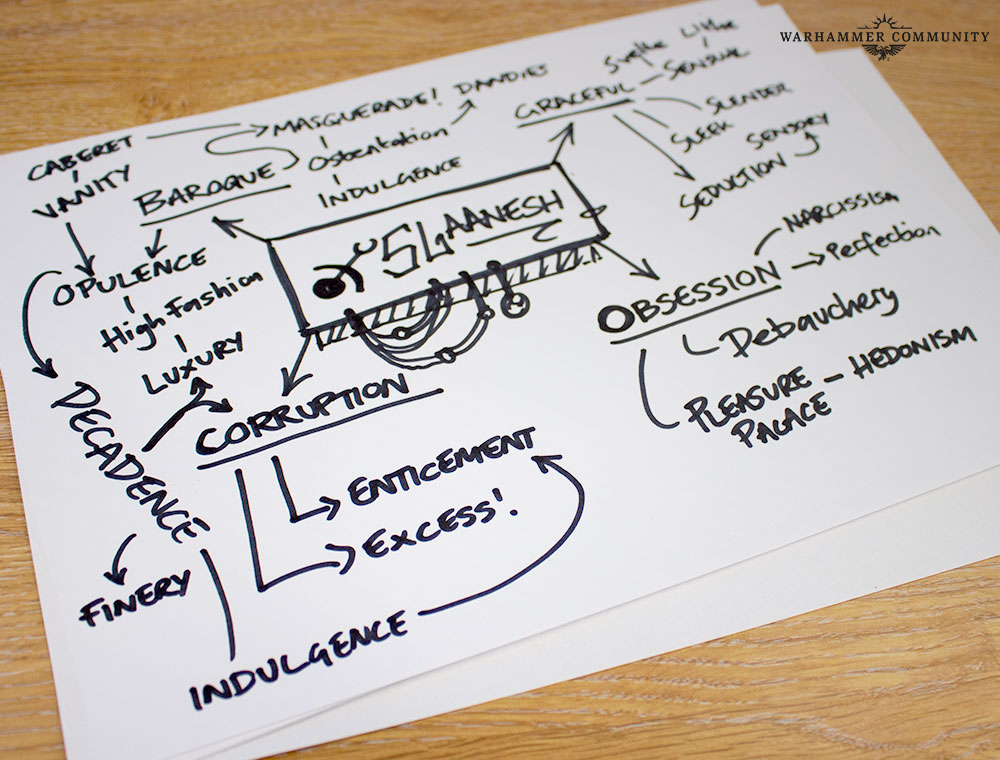 WARHAMMER COMMUNITY
CABERET
VANITY
MASQUERADE!
DANDIES
Svelte
Lithe
GRACEFUL - SENSUAL
SLENDER
SLEEK
SENSORY
SEDUCTION
BAROQUE
Ostentation
INDULGENCE
SLAANESH
OPULENCE
High Fashion
LUXURY
NARCISSISM
OBSESSION
Perfection
Debauchery
PLEASURE - HEDONISM
PALACE
DECADENCE
CORRUPTION
ENTICEMENT
EXCESS!
FINERY
INDULGENCE